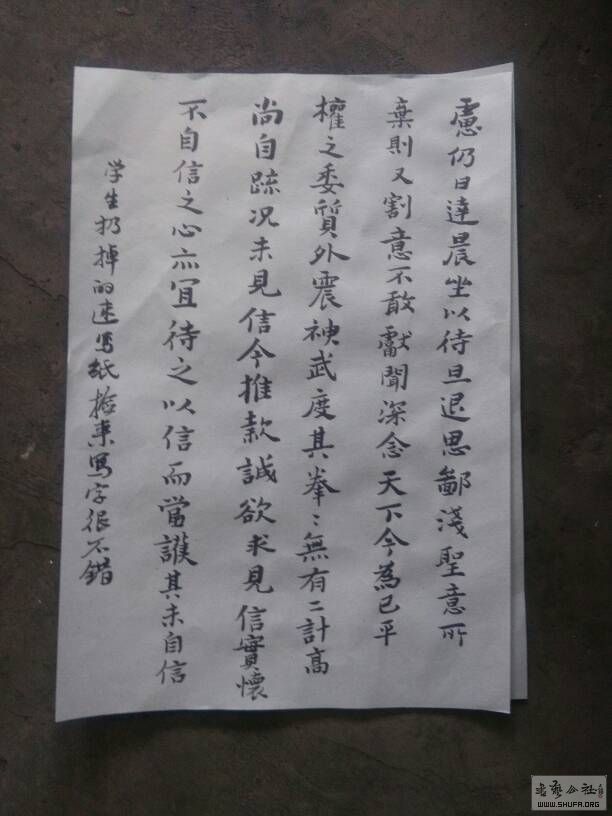 慮仍日達晨坐以待旦退思鄙淺聖意所
棄則又割意不敢獻聞深念天下今為已平
權之委質外震神武度其拳〻無有二計高
尚自疏况未見信今推款誠欲求見信實懷
不自信之心亦宜待之以信而當護其未自信
学生扔掉的速写紙撿來寫字很不錯
書藝公社
WWW.SHUFA.ORG